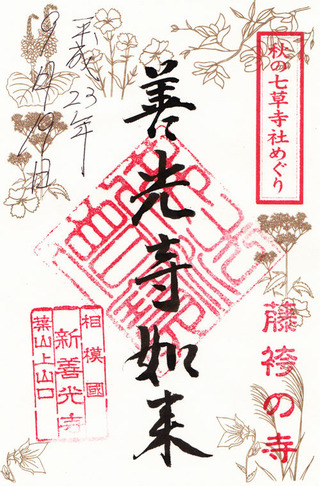 秋の七草寺社めぐり
藤袴の寺
善光寺如来
平成23年
9月19日
相模國
新善光寺
葉山上山口